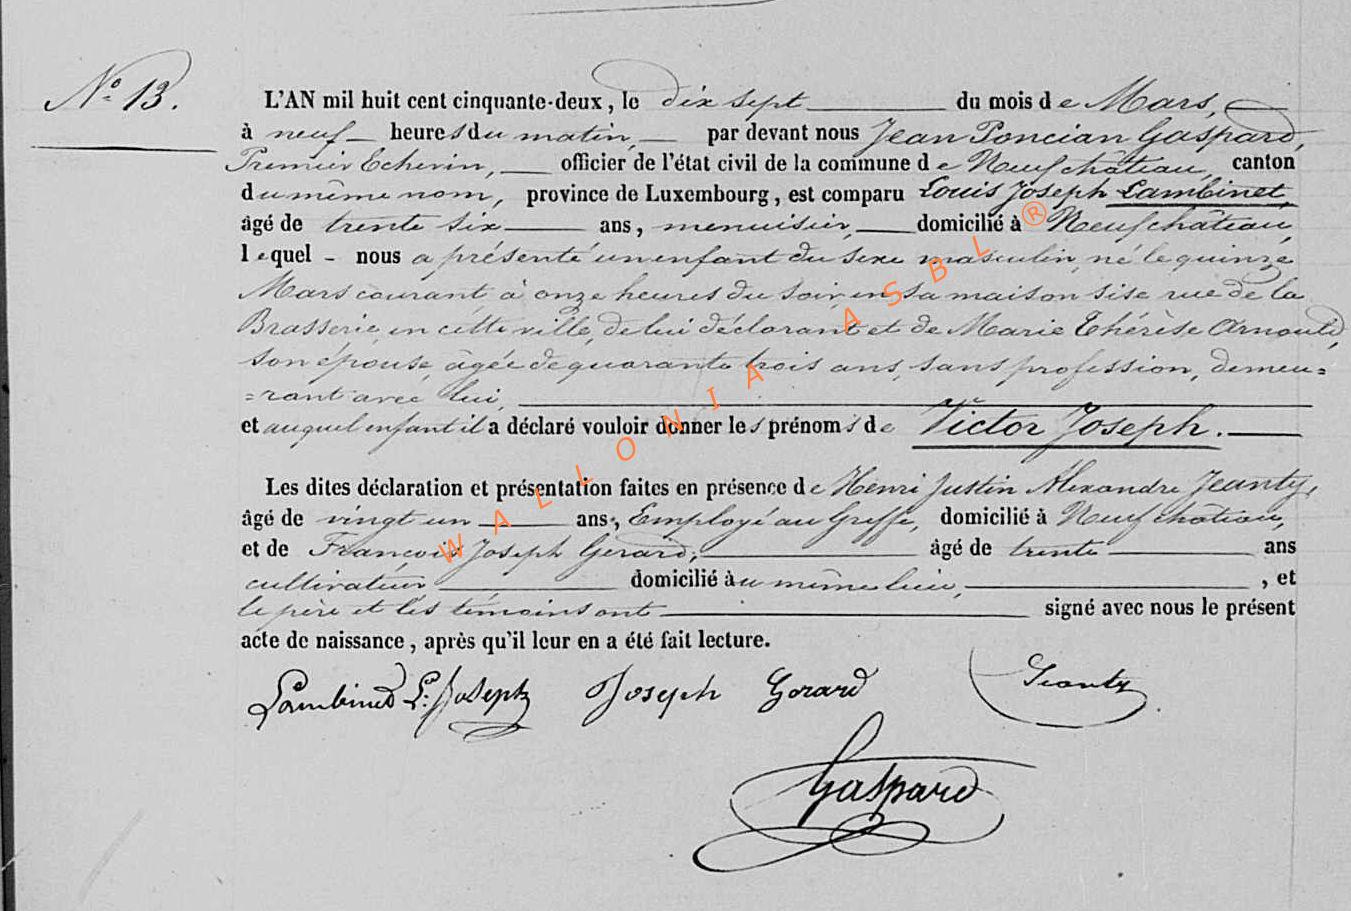 N.° 13.
L'AN mil huit cent cinquante-deux, le dix sept du mois de Mars,
à neuf heures du matin, par devant nous Jean Poncian Gaspard,
Premier Echevin, officier de l'état civil de la commune de Neufchâteau, canton
du même nom, province de Luxembourg, est comparu Louis Joseph Lambinet,
âgé de trente six ans, menuisier, domicilié à Neufchâteau,
lequel - nous a présenté un enfant du sexe masculin, né le quinze
Mars courant à onze heures du soir, en sa maison sise rue de la
Brasserie, en cette ville, de lui déclarant et de Marie Thérèse Arnould,
son épouse, âgée de quarante trois ans, sans profession, demeu=
=rant avec lui,
et auquel enfant il a déclaré vouloir donner les prénoms de Victor Joseph.
Les dites déclaration et présentation faites en présence de Henri Justin Alexandre Jeanty,
âgé de vingt un ans, Employé au Greffe, domicilié à Neufchâteau,
et de François Joseph Gerard, âgé de trente ans
cultivateur domicilié au même lieu, , et
le père et les témoins ont signé avec nous le présent
acte de naissance, après qu'il leur en a été fait lecture.
Lambinet L. Joseph Joseph Gerard Jeanty
Gaspard
WALLONIA ASBL ®